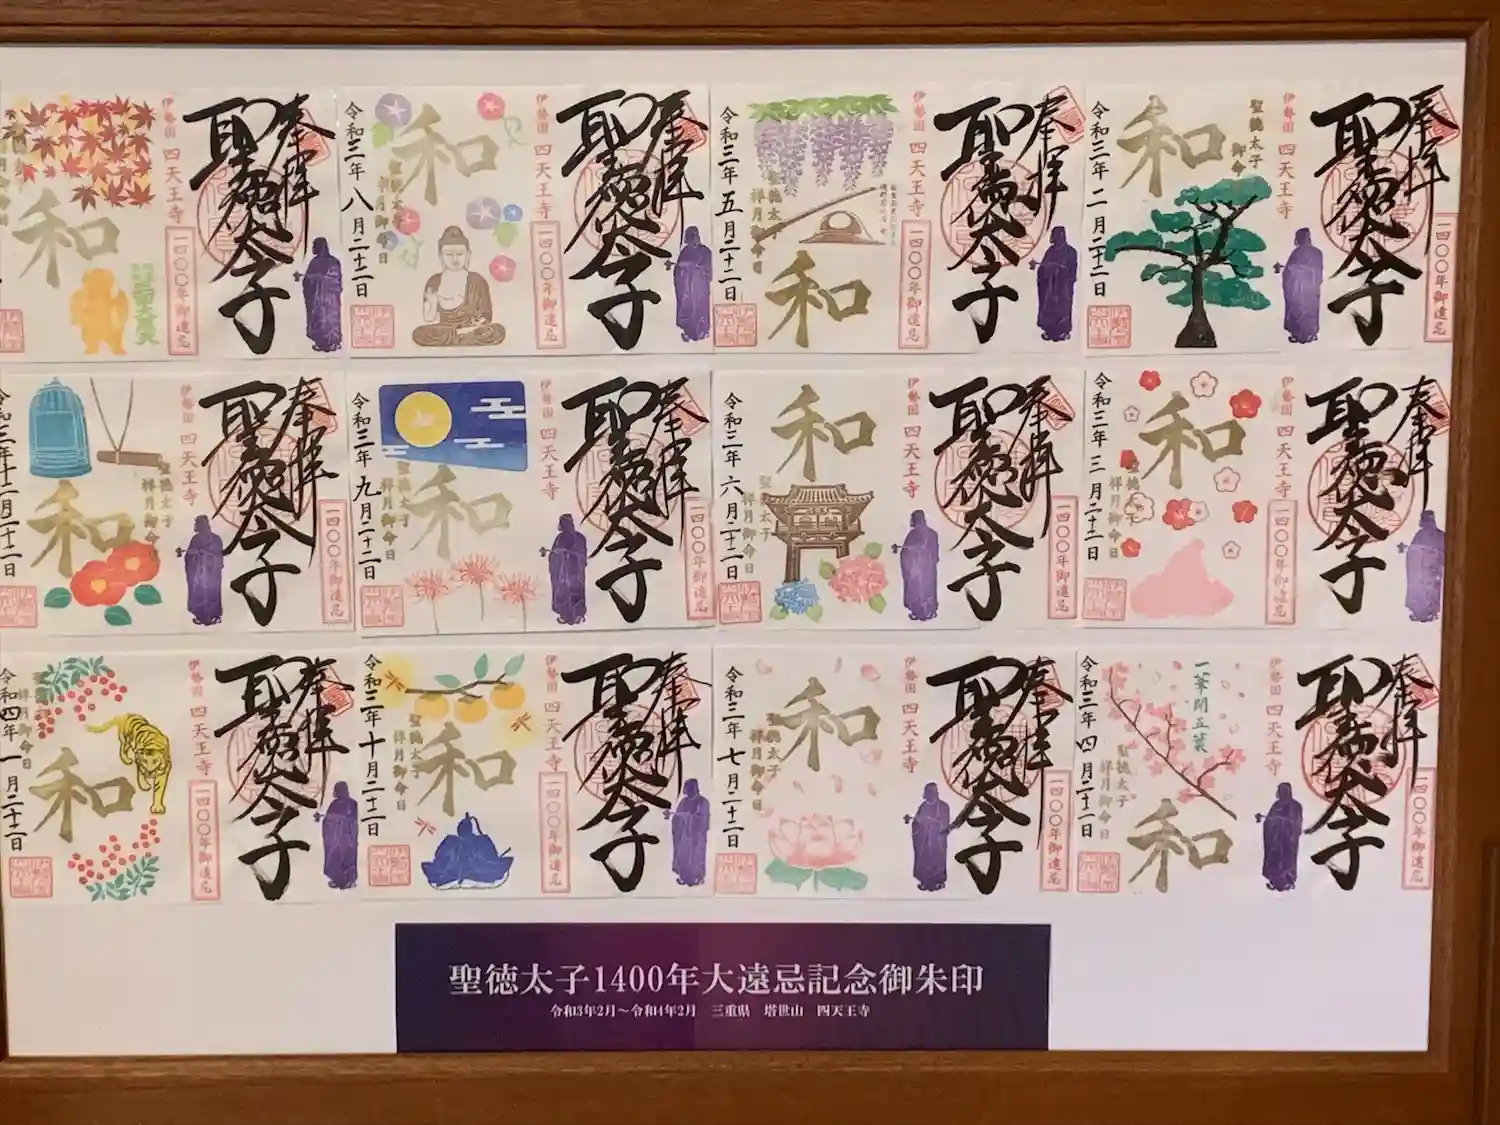 奉拝
聖徳太子
一四〇〇年御遠忌
伊勢国 四天王寺
聖徳太子
和
令和三年二月二十二日
奉拝
聖徳太子
一四〇〇年御遠忌
伊勢国 四天王寺
和
聖徳太子
祥月御命日
令和三年三月二十二日
奉拝
聖徳太子
一四〇〇年御遠忌
伊勢国 四天王寺
一華開五葉
和
聖徳太子
祥月御命日
令和三年四月二十二日
奉拝
聖徳太子
一四〇〇年御遠忌
伊勢国 四天王寺
和
聖徳太子
祥月御命日
令和三年五月二十二日
奉拝
聖徳太子
一四〇〇年御遠忌
伊勢国 四天王寺
和
聖徳太子
祥月御命日
令和三年六月二十二日
奉拝
聖徳太子
一四〇〇年御遠忌
伊勢国 四天王寺
和
聖徳太子
祥月御命日
令和三年七月二十二日
奉拝
聖徳太子
一四〇〇年御遠忌
伊勢国 四天王寺
和
聖徳太子
祥月御命日
令和三年八月二十二日
奉拝
聖徳太子
一四〇〇年御遠忌
伊勢国 四天王寺
和
聖徳太子
祥月御命日
令和三年九月二十二日
奉拝
聖徳太子
一四〇〇年御遠忌
伊勢国 四天王寺
和
聖徳太子
祥月御命日
令和三年十月二十二日
奉拝
聖徳太子
一四〇〇年御遠忌
伊勢国 四天王寺
和
奉拝
聖徳太子
一四〇〇年御遠忌
伊勢国 四天王寺
和
聖徳太子
祥月御命日
令和三年十二月二十二日
奉拝
聖徳太子
一四〇〇年御遠忌
伊勢国 四天王寺
和
祥月御命日
令和四年一月二十二日
聖徳太子1400年大遠忌記念御朱印
令和3年2月～令和4年2月　三重県　塔世山　四天王寺